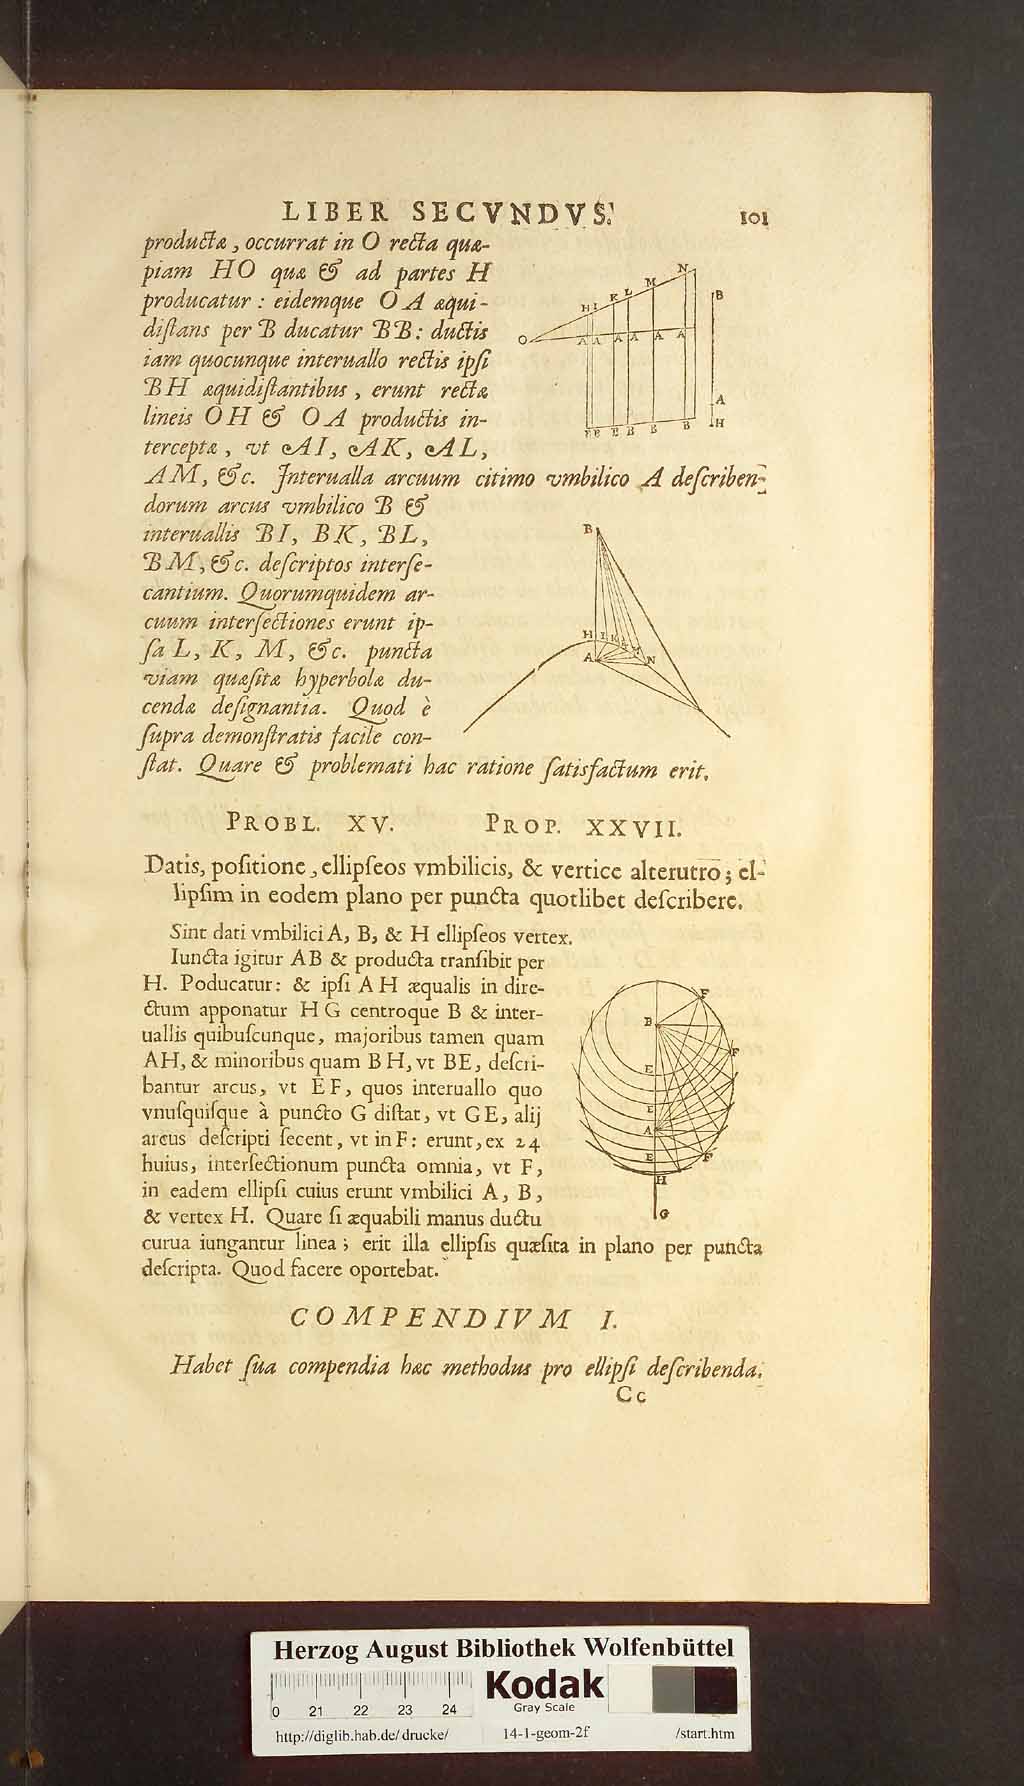 LIBER SECVNDVS. 101
productæ, occurrat in O recta quæ-
piam HO quæ & ad partes H
producatur : eidemque OA æqui-
distans per B ducatur BB : ductis
iam quocunque interuallo rectis ipsi
BH æquidistantibus, erunt rectæ
lineis OH & OA productis in-
terceptæ, vt AI, AK, AL,
AM, &c. Interualla arcuum citimo vmbilico A describen-
dorum arcus vmbilico B &
interuallis BI, BK, BL,
BM, &c. descriptos interse-
cantium. Quorumquidem ar-
cuum intersectiones erunt ip-
sa L, K, M, &c. puncta
viam quæsitæ hyperbolæ du-
cendæ designantia. Quod è
supra demonstratis facile con-
stat. Quare & problemati hac ratione satisfactum erit.
O H I K L M N
A A A A A A
B B B B B B
B
A
H
B
H I K L M N
A
PROBL. XV. PROP. XXVII.
Datis, positione, ellipseos vmbilicis, & vertice alterutro ; el-
lipsim in eodem plano per puncta quotlibet describere.
Sint dati vmbilici A, B, & H ellipseos vertex.
Iuncta igitur AB & producta transibit per
H. Poducatur : & ipsi AH æqualis in dire-
ctum apponatur HG centroque B & inter-
uallis quibuscunque, majoribus tamen quam
AH, & minoribus quam BH, vt BE, descri-
bantur arcus, vt EF, quos interuallo quo
vnusquisque à puncto G distat, vt GE, alij
arcus descripti secent, vt in F : erunt, ex 24
huius, intersectionum puncta omnia, vt F,
in eadem ellipsi cuius erunt vmbilici A, B,
& vertex H. Quare si æquabili manus ductu
curua iungantur linea ; erit illa ellipsis quæsita in plano per puncta
descripta. Quod facere oportebat.
F
B
F
E
E
A
E F
H
G
COMPENDIVM I.
Habet sua compendia hæc methodus pro ellipsi describenda.
Cc
Herzog August Bibliothek Wolfenbüttel
Kodak
Gray Scale
0 21 22 23 24
http://diglib.hab.de/drucke/ 14-1-geom-2f /start.htm